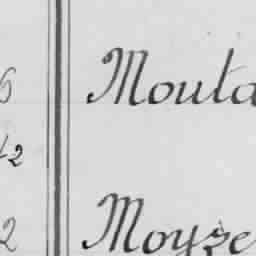 6 Mouta
42
2 Moyse